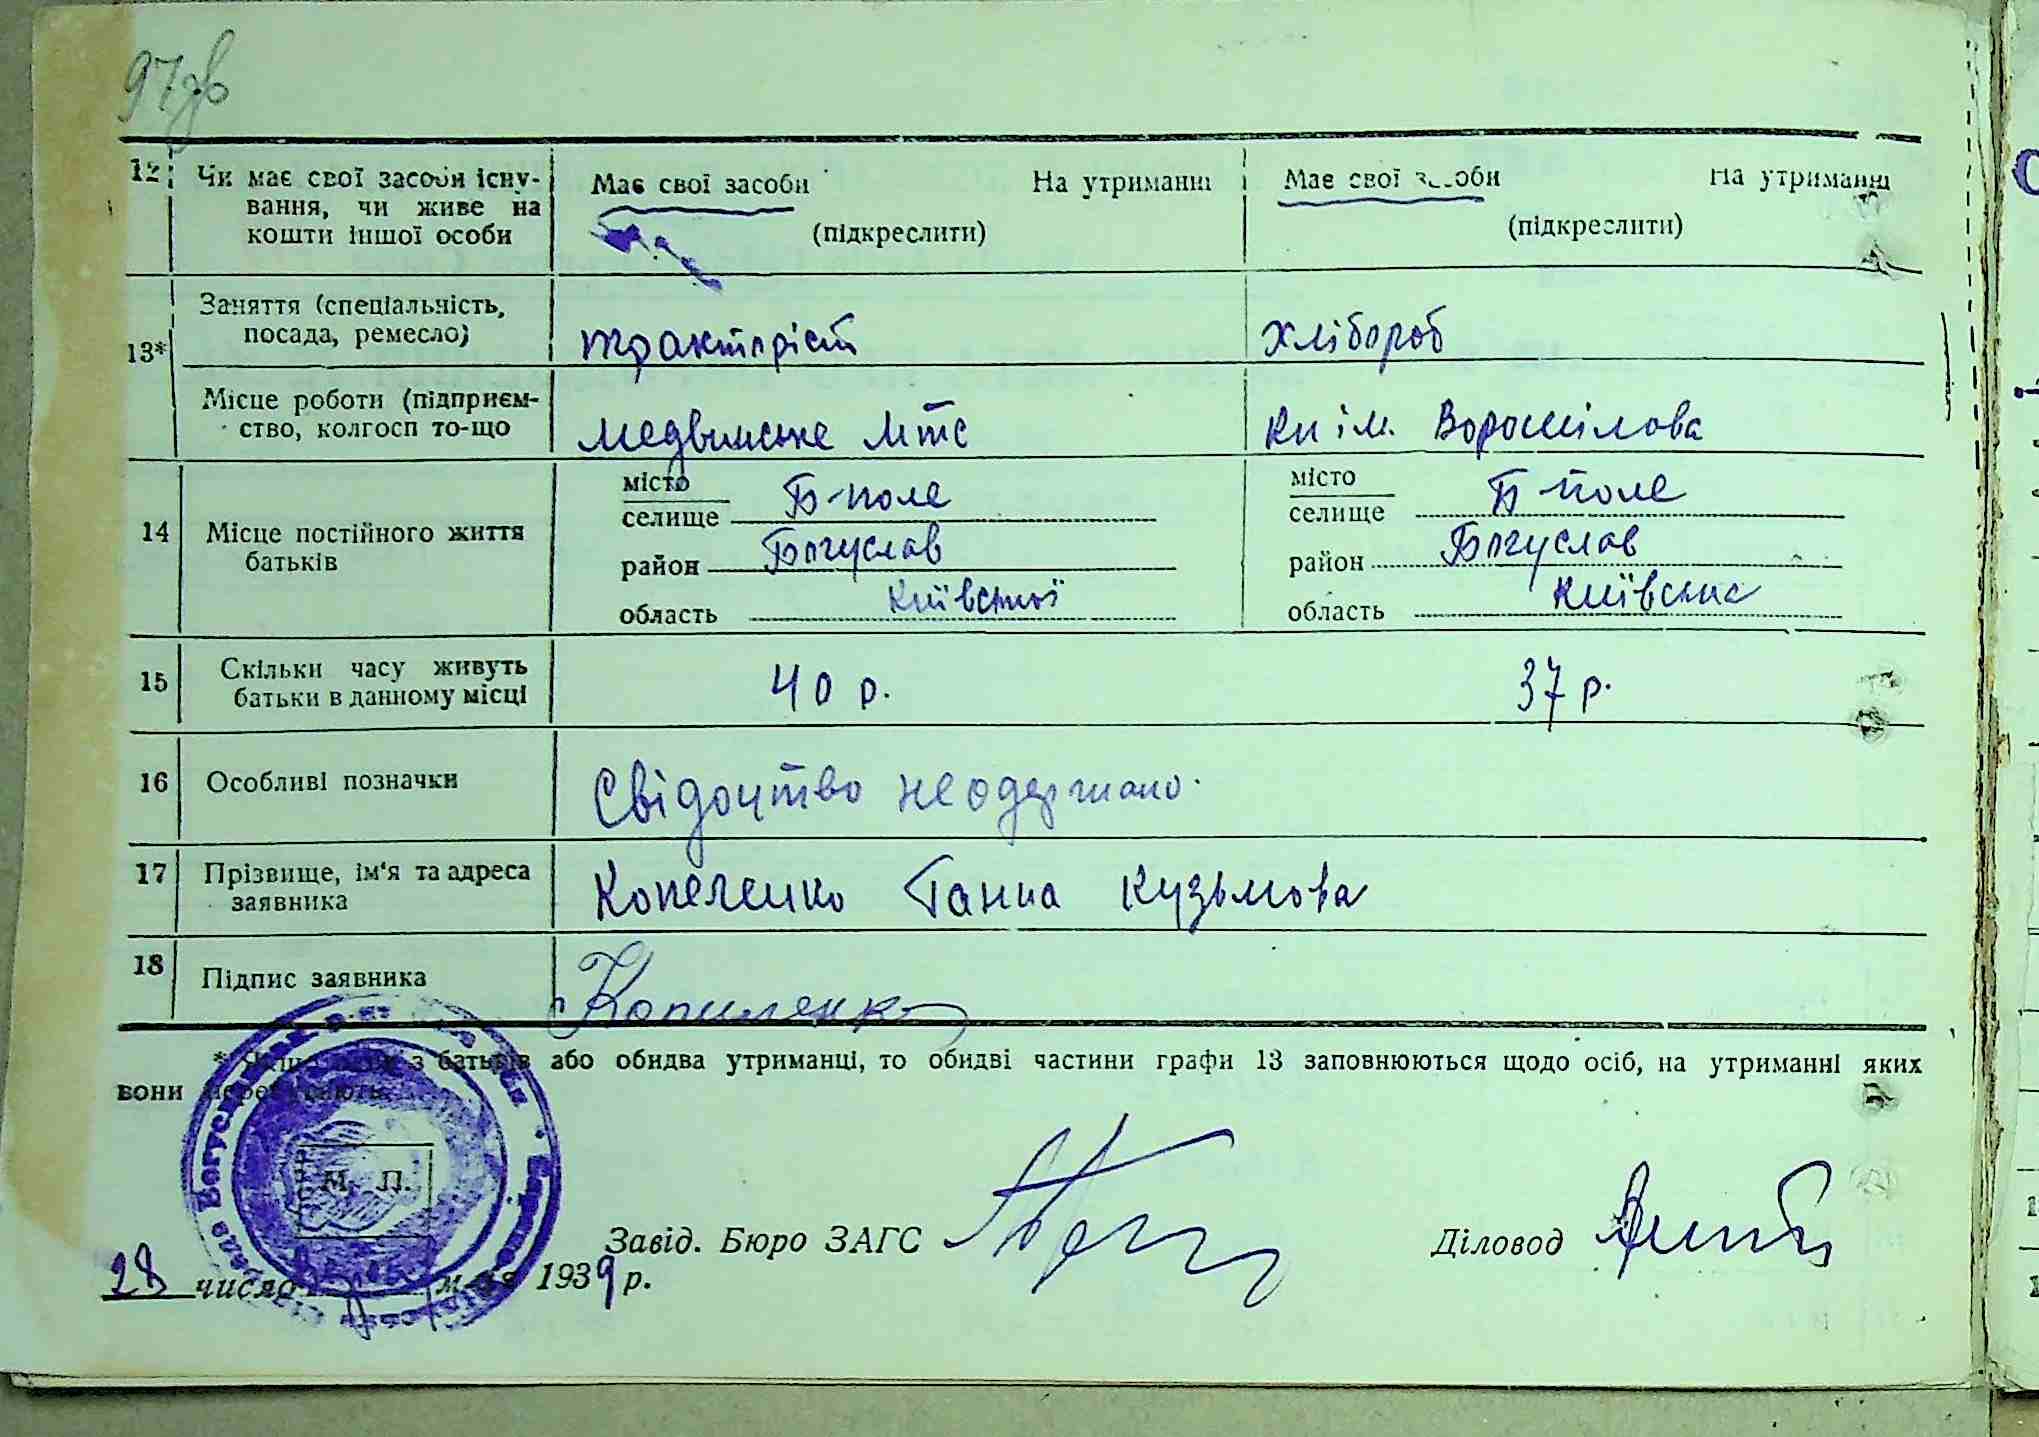 97зв
12 Чи має свої засоби існу-
вання, чи живе на
кошти іншої особи
Має свої засоби На утриманні
(підкреслити)
Має свої засоби На утриманні
(підкреслити)
13*
Заняття (спеціальність,
посада, ремесло)
тракторіст
хлібороб
Місце роботи (підприєм-
ство, колгосп то-що
медвинське мтс
кп ім. Ворошілова
14 Місце постійного життя
батьків
місто
селище Б-поле
район Богуслав
область Київської
місто
селище Б-поле
район Богуслав
область Київська
15 Скільки часу живуть
батьки в данному місці
40 р.
37 р.
16 Особливі позначки
Свідоцтво неодержано.
17 Прізвище, ім'я та адреса
заявника
Копеленко Ганна Кузьмова
18 Підпис заявника
Копиленко
* з батьків або обидва утриманці, то обидві частини графи 13 заповнюються щодо осіб, на утриманні яких
вони
М. П.
Завід. Бюро ЗАГС
Діловод
28 число 1939 р.